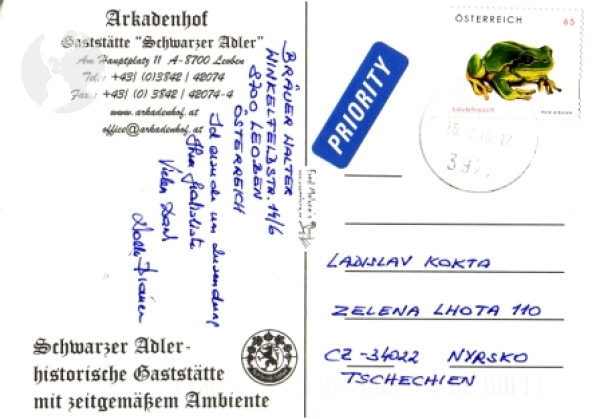 Arkadenhof
Gaststätte "Schwarzer Adler"
Am Hauptplatz 11 A-8700 Leoben
Tel.: +43/ (0)3842 / 42074
Fax.: +43/ (0)3842 / 42074-4
www.arkadenhof.at
office@arkadenhof.at
BRÄUER WALTER
WINKELFELDSTR. 14/6
8700 LEOBEN
ÖSTERREICH
Ich ersuche um Zusendung
Ihrer
Vielen Dank
Schwarzer Adler-
historische Gaststätte
mit zeitgemäßem Ambiente
PRIORITY
ÖSTERREICH 65
Laubfrosch
LADISLAV KOKTA
ZELENA LHOTA 110
CZ-34022 NYRSKO
TSCHECHIEN